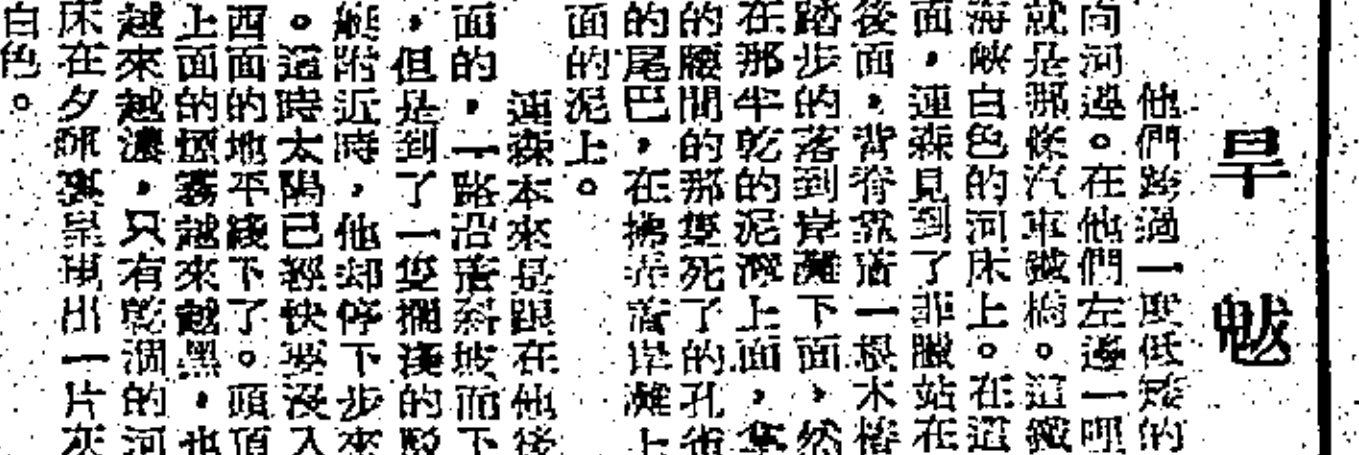 旱魃
他們跨過一聖低矮的
向河邊。在他們左邊一哩
就是那條汽車鐵橋。這鐵
海峽白色的河床上。在這
面,連森見到了菲臘站在
後面,背脊靠着一根木樁
踏步的落到岸灘下面,然
在那半乾的泥濘上面,隼
的腰間的那隻死了的孔雀
的尾巴,在拂弄着岸灘上
面的泥上。
連森本來是跟在他後
面的,一路沿着斜坡而下
,但是到了一隻擱淺的駁
艇附近時,他却停下步來
。這時太陽已經快要沒入
西面的地平綫下了。頭頂
上面的煙霧越來越黑,也
越來越濃,只有乾涸的河
床在夕照裏呈現出一片灰
白色。